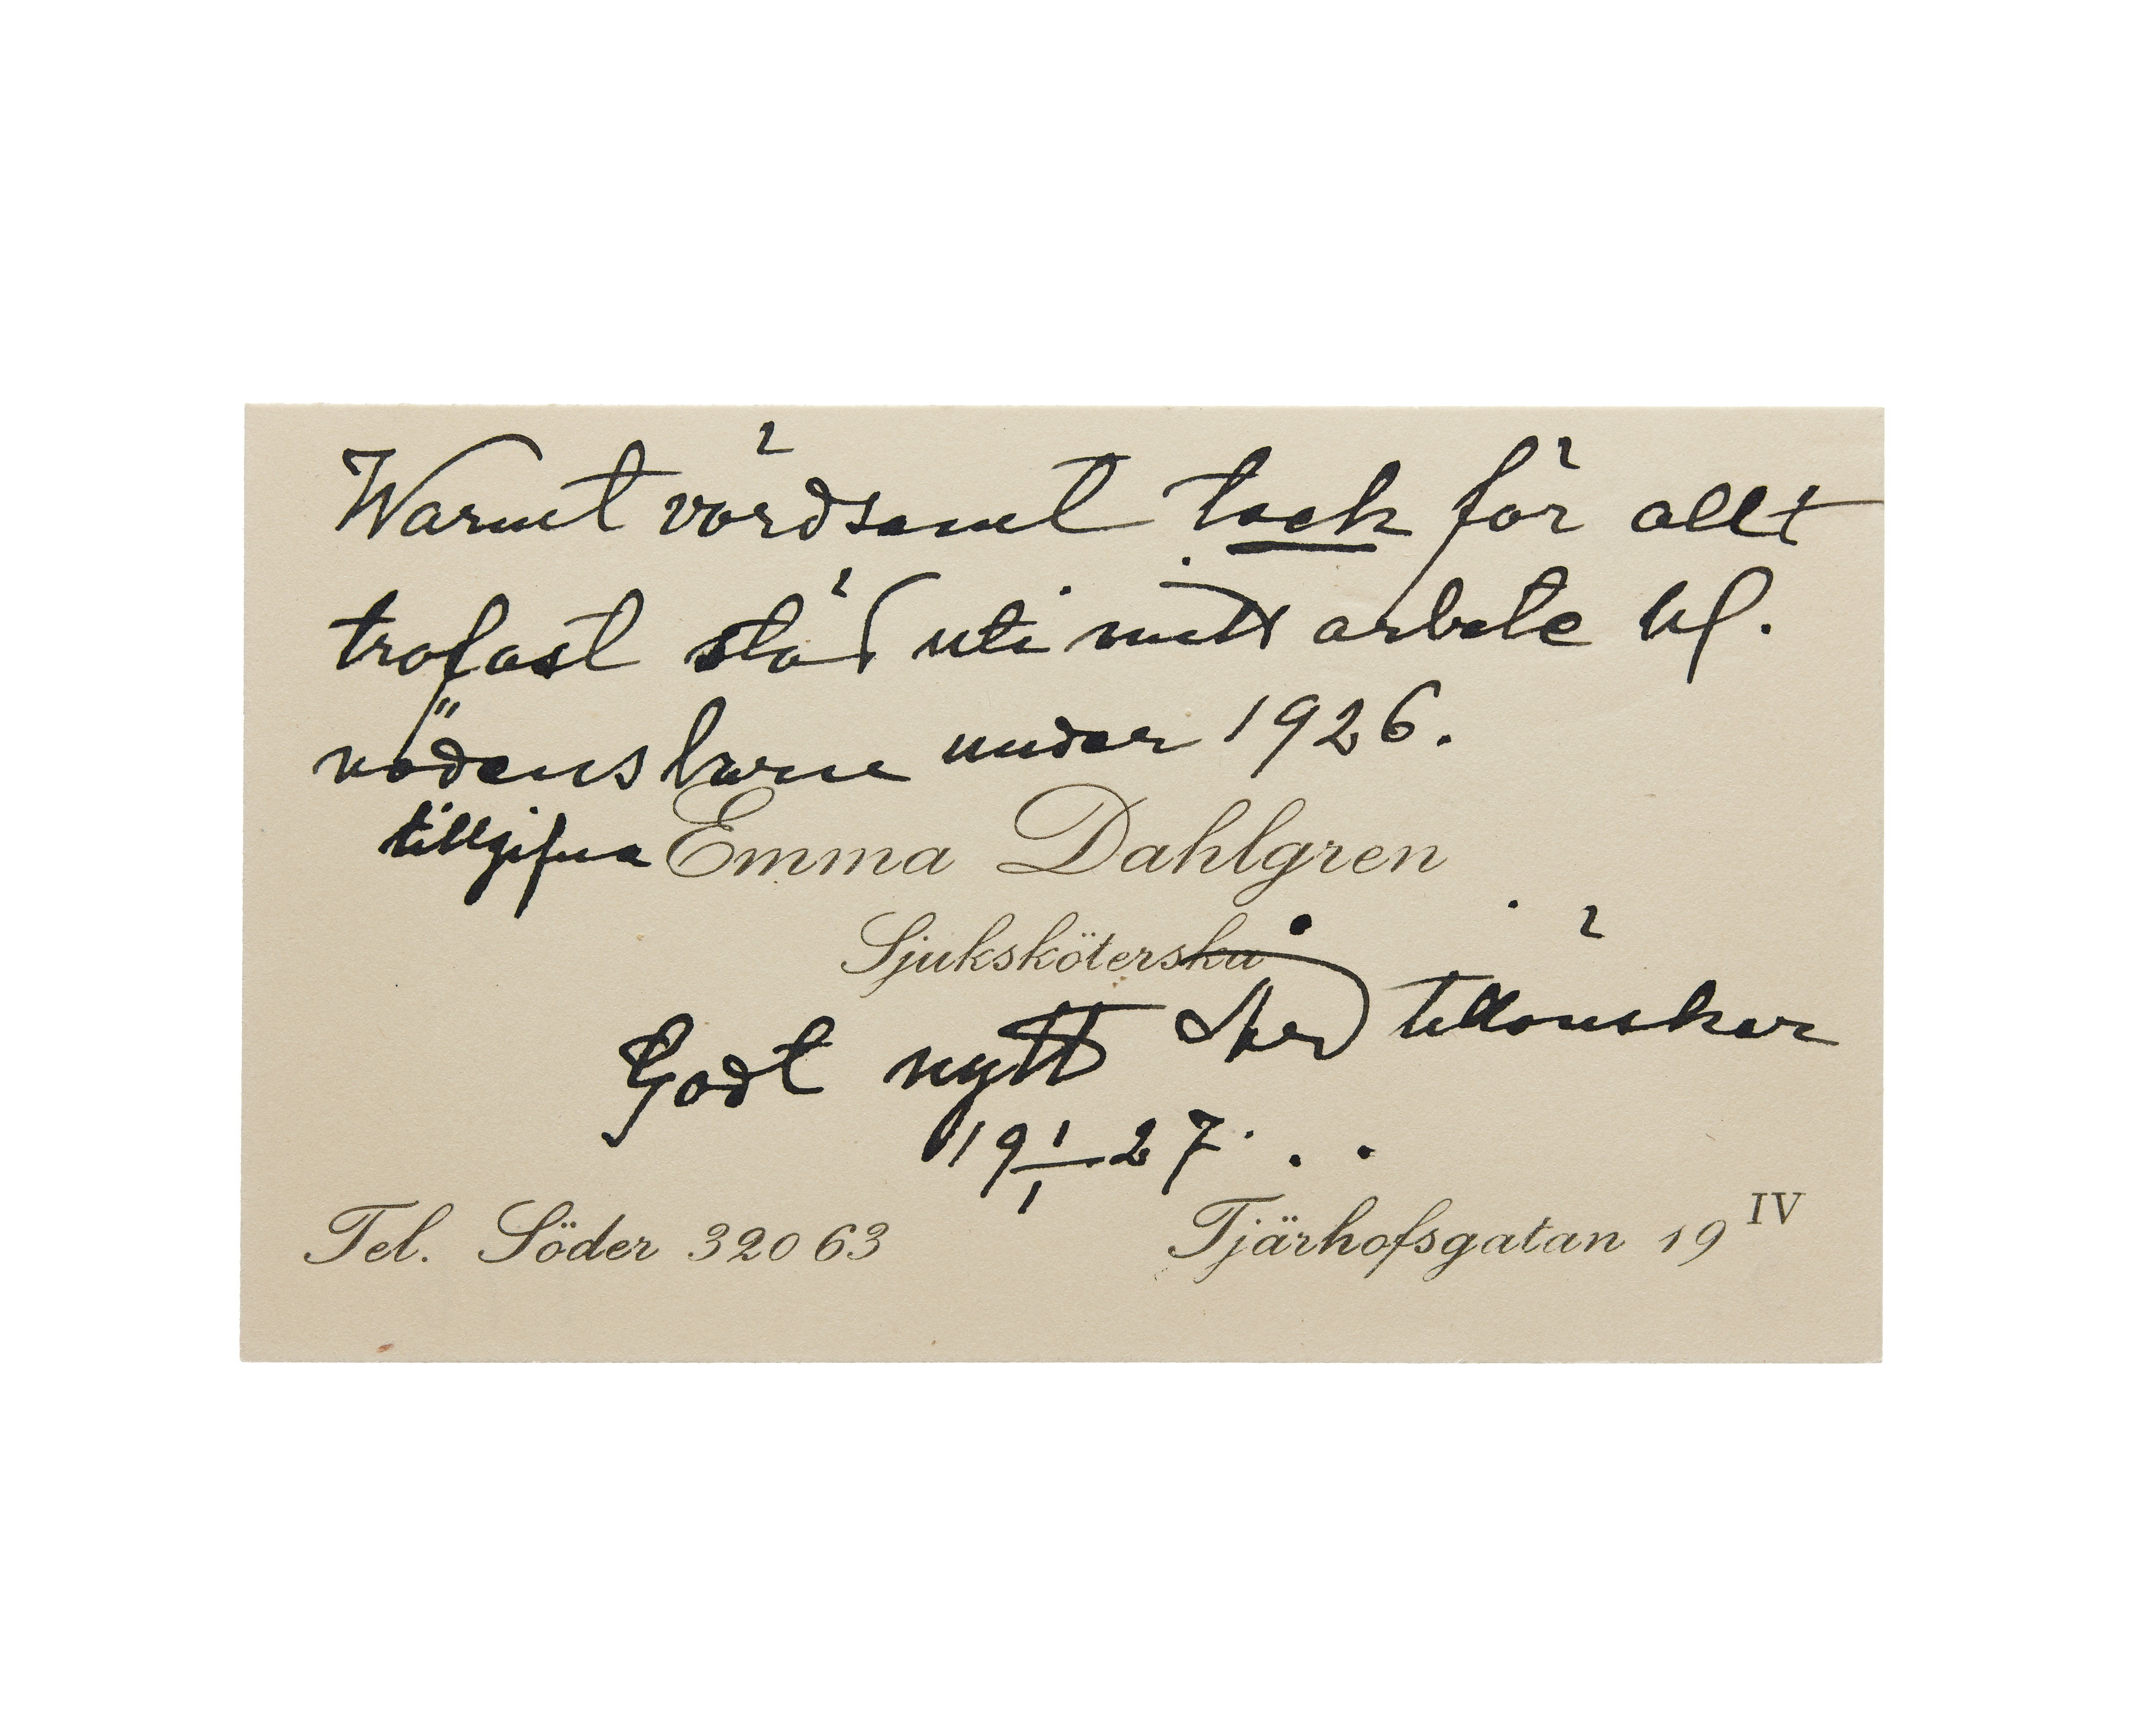 Warmt vördsamt tack för allt
trofast stöd uti mitt arbete bl.
nödens barn under 1926.
tillgifna Emma Dahlgren
Sjuksköterska
Godt nytt År tillönskar
19 1/1 27.
Tel. Söder 320 63
Tjärhofsgatan 19 IV